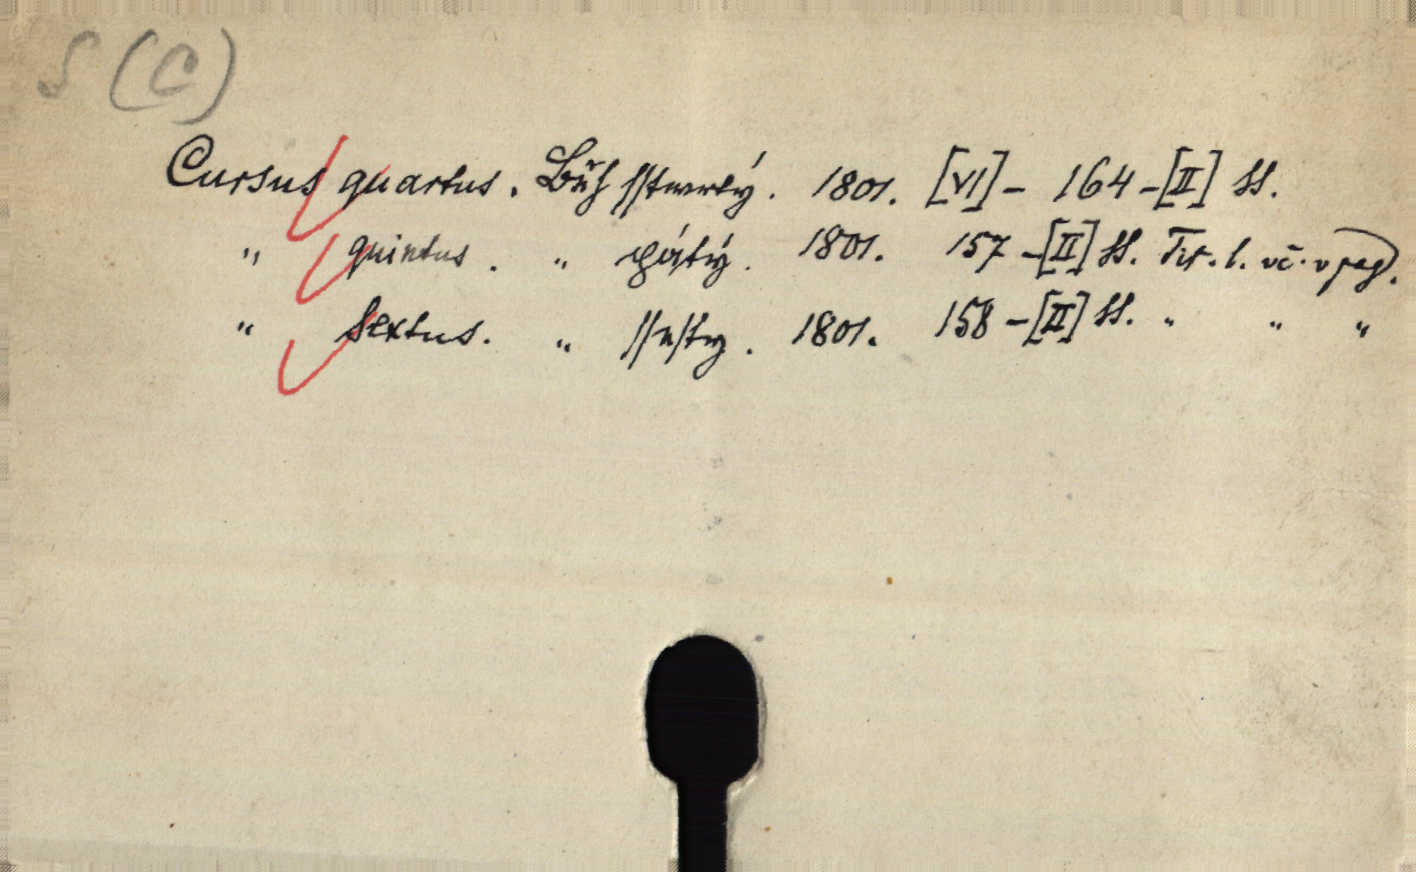 S (C)
Cursus quartus. Běh sstwrtý. 1801. [VI] - 164 - [II] ss.
" quintus. " pátý. 1801. 157 - [II] ss. Tit. l. vč. v pag.
" Sextus. " ssestý. 1801. 158 - [II] ss. " " "